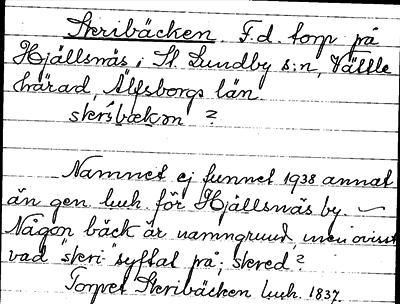 Skribäcken F.d. torp på
Hjällsnäs i St. Lundby s:n, Vättle
härad, Älfsborgs län
skri̇̀bækən ?
Namnet ej funnet 1938 annat
än gen. husf. för Hjällsnäs by. —
Någon bäck är namngrund, men ovisst
vad "skri-" syftat på; skred?
Torpet Skribäcken husf. 1837